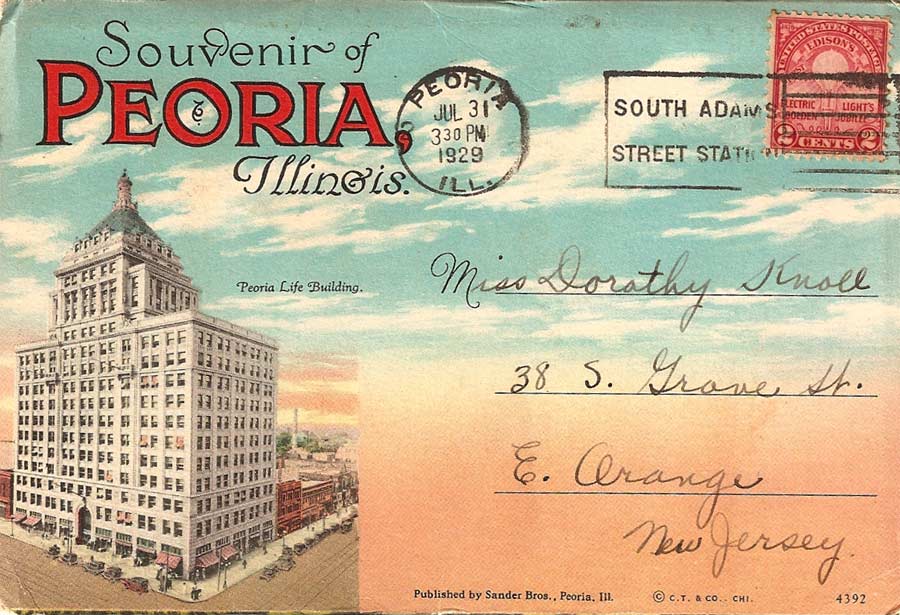 Souvenir of
PEORIA,
Illinois.
PEORIA
JUL 31
3 30 PM
1929
ILL.
SOUTH ADAMS
STREET STATION
UNITED STATES POSTAGE
EDISON'S
ELECTRIC LIGHT'S
GOLDEN JUBILEE
2 CENTS 2
Peoria Life Building.
Miss Dorothy Knoll
38 S. Grove St.
E. Orange
New Jersey.
Published by Sander Bros., Peoria, Ill.
© C.T. & CO.. CHI.
4392